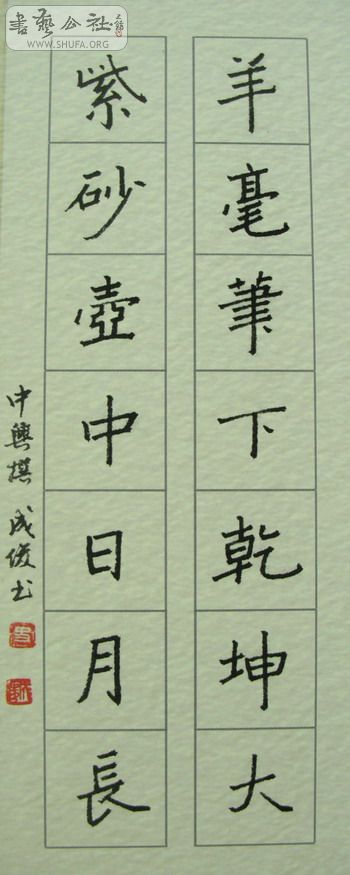 羊毫筆下乾坤大
紫砂壺中日月長
中興撰 成俊书
書藝公社
WWW.SHUFA.ORG